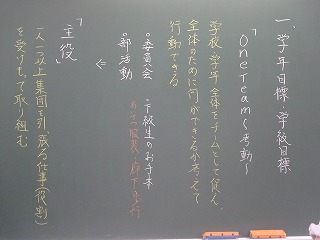 一、学年目標・学級目標
「One Team〜考動〜」
学校、学年全体をチームとして捉え、
全体のために何ができるか考えて
行動できる
・委員会 ・下級生のお手本
・部活動
↓
「主役」
(一人一つ以上集団を引っ張る仕事(役割)
を受けもって取り組む